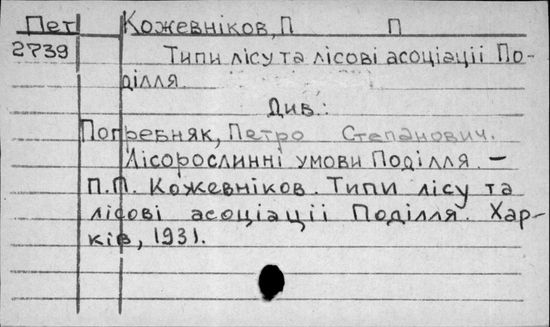 Пет Кожевніков, П П
2739 Типи лісу та лісові асоціації По-
ділля.
Див.:
Погребняк, Петро Степанович.
Лісорослинні умови Поділля. –
П.П. Кожевніков. Типи лісу та
лісові асоціації Поділля. Хар-
ків, 1931.